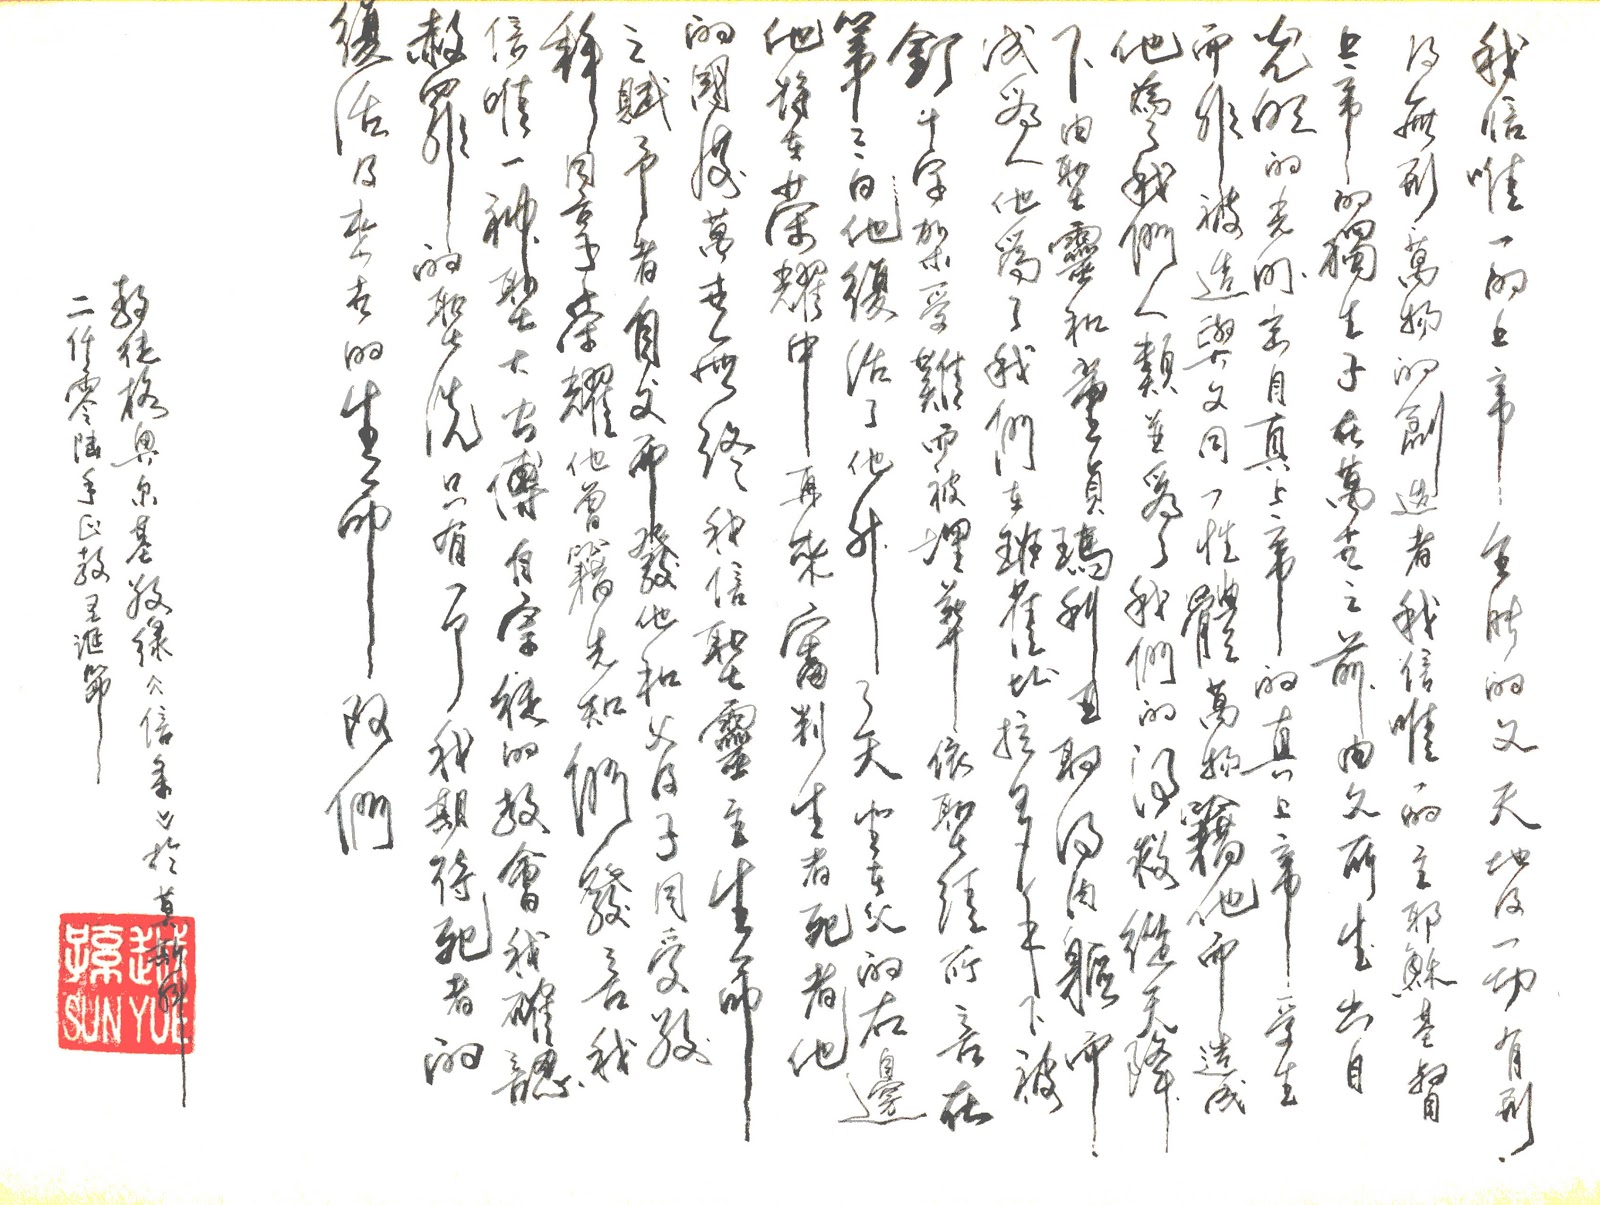 我信唯一的上帝全能的父天地及一切有形
及無形萬物的創造者我信唯一的主耶穌基督
上帝的獨生子在萬世之前由父所生出自
光明的光明出自真上帝的真上帝受生
而非被造與父同一性體萬物藉他而造成
他為了我們人類並為了我們的得救從天降
下由聖靈和童貞瑪利亞取得肉軀而
成為人他為了我們在般雀比拉多手下被
釘十字架受難而被埋葬依聖經所言在
第三日他復活了他升了天坐在父的右邊
他將在榮耀中再來審判生者死者他
的國度萬世無終我信聖靈主生命
之賦予者自父而發他和父及子同受敬
拜同享榮耀他曾藉先知們發言我
信唯一神聖大公傳自宗徒的教會我確認
赦罪的聖洗只有一個我期待死者的
復活及來世的生命阿們
教徒格奧爾基敬錄信條於莫斯科
二仟零陸年正教聖誕節
孫越
SUN YUE